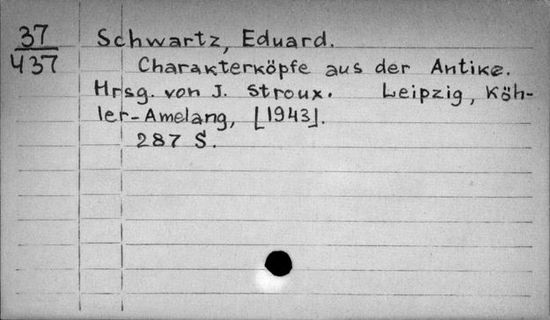 37
437
Schwartz, Eduard.
Charakterköpfe aus der Antike.
Hrsg. von J. Stroux. Leipzig, Köh-
ler-Amelang, [1943].
287 S.